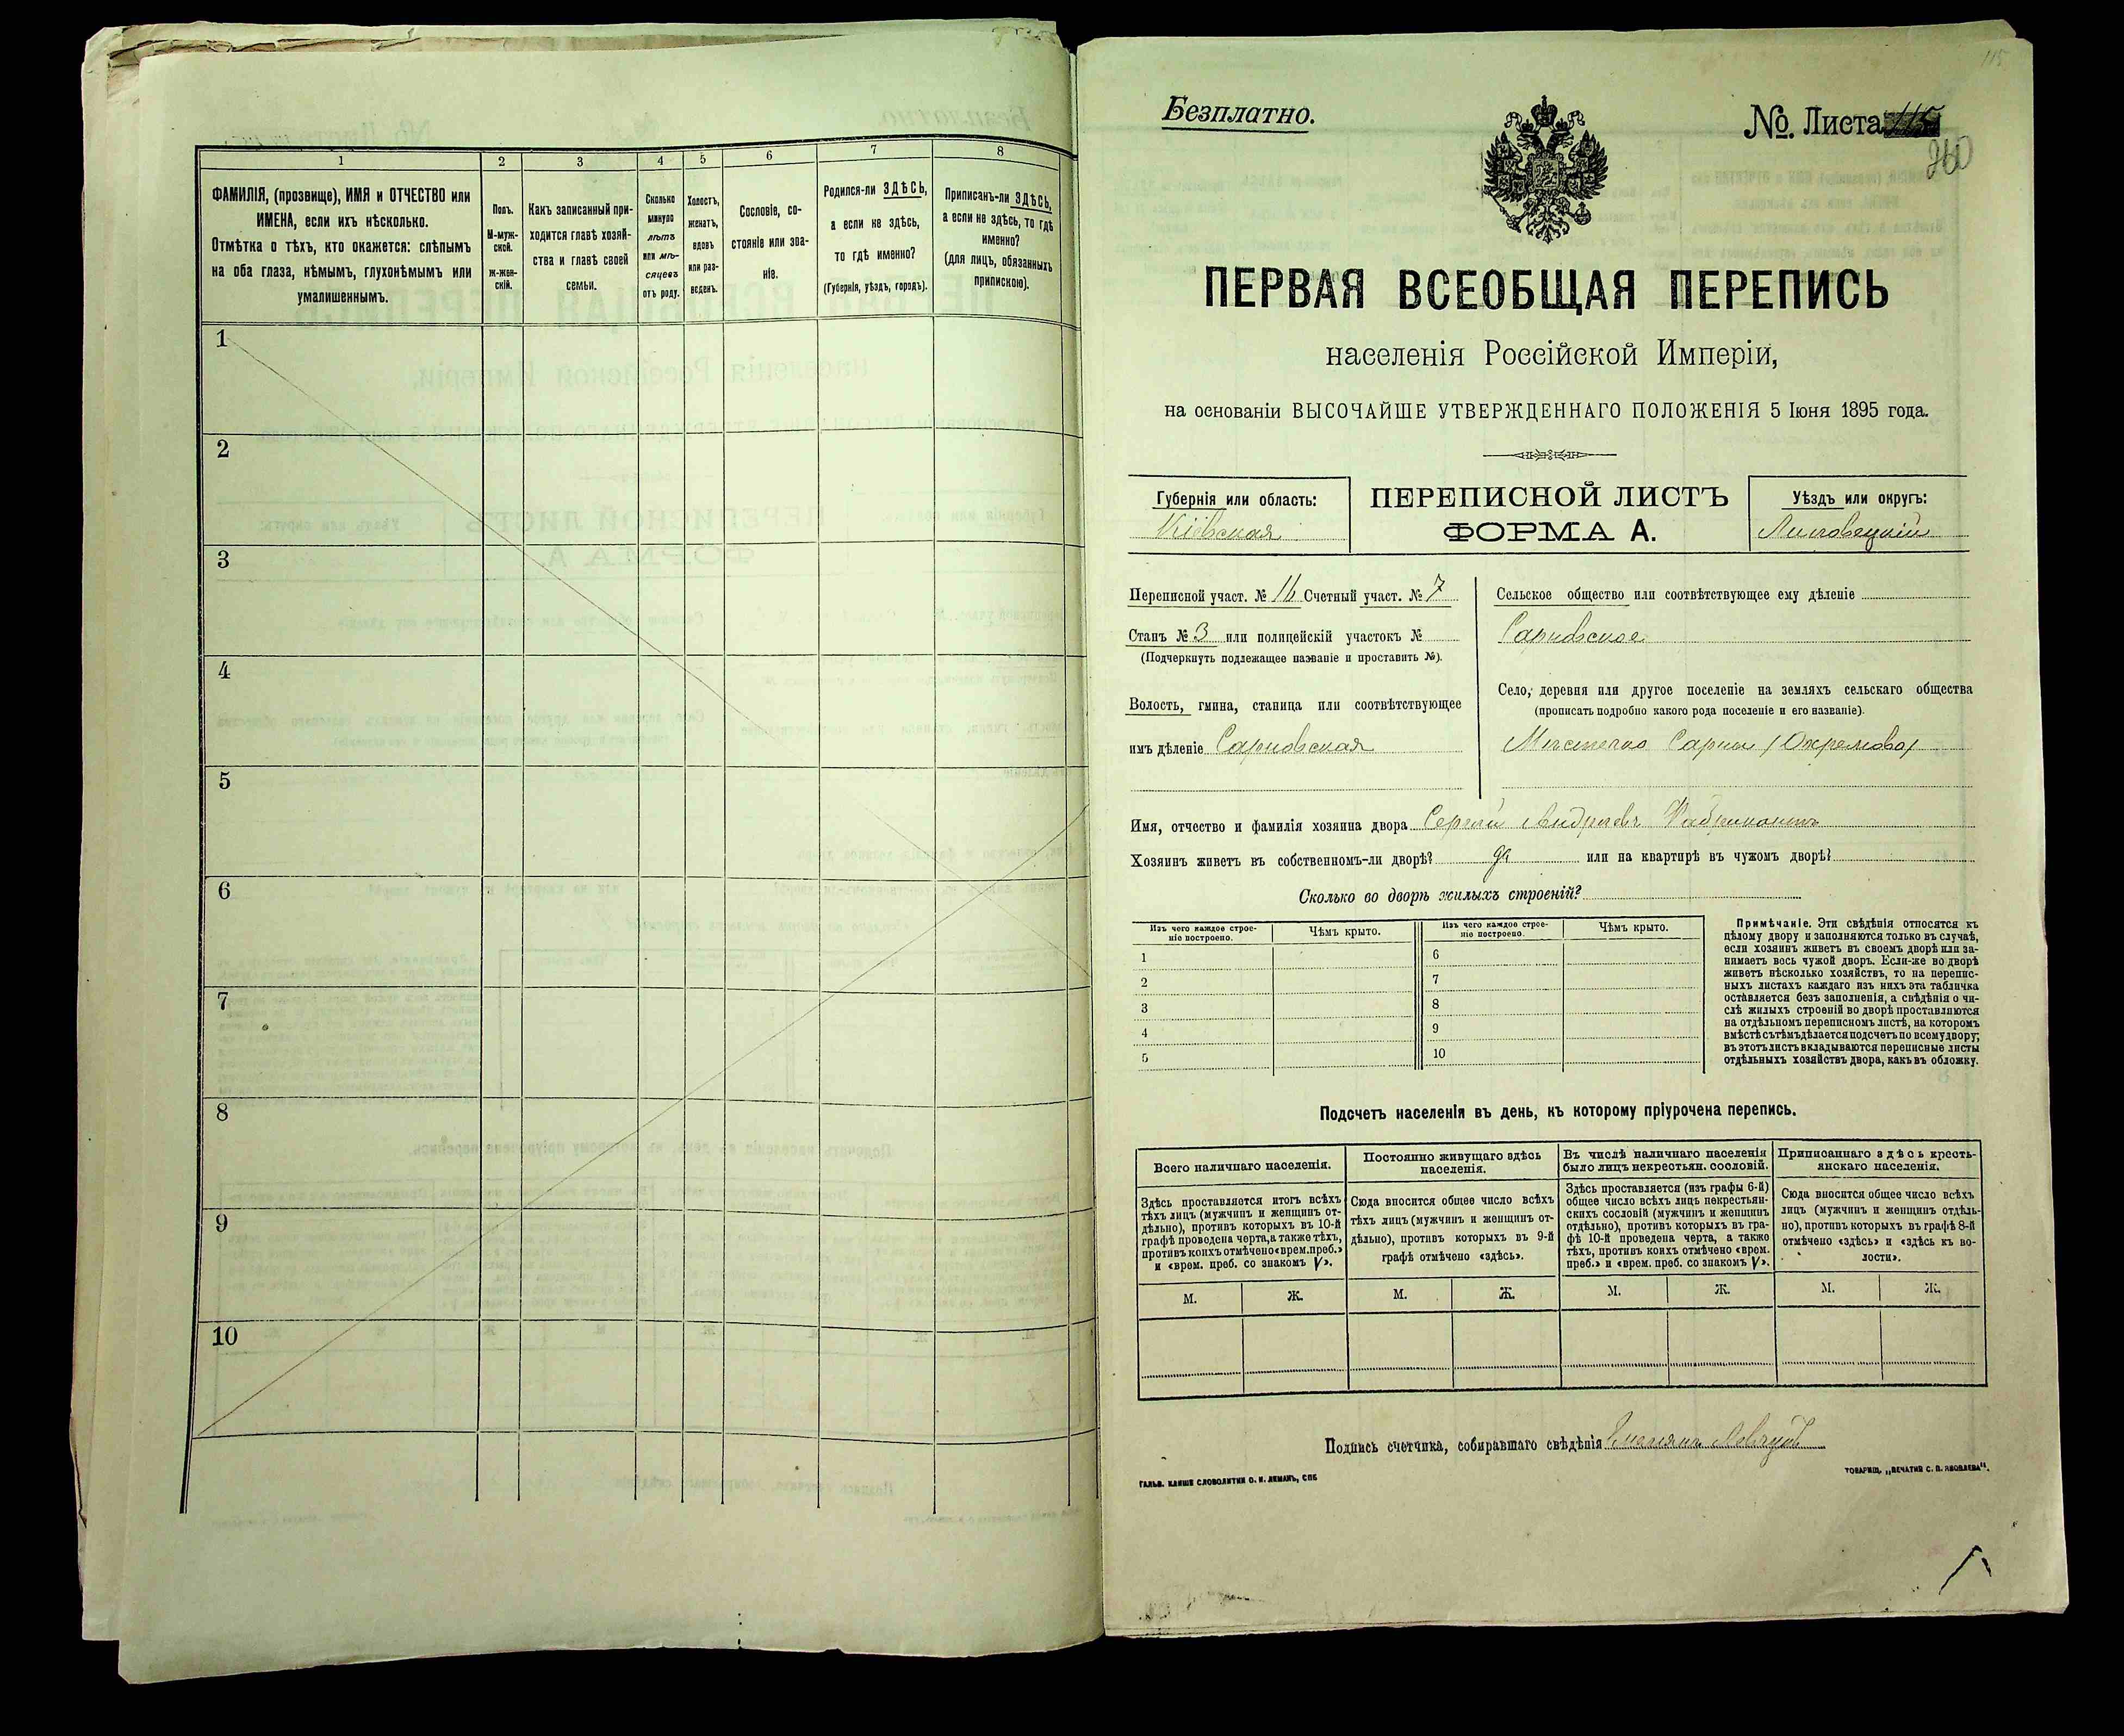 1
2
3
4
5
6
7
8
ФАМИЛІЯ, (прозвище), ИМЯ и ОТЧЕСТВО или
ИМЕНА, если ихъ нѣсколько.
Отмѣтка о тѣхъ, кто окажется: слѣпымъ
на оба глаза, нѣмымъ, глухонѣмымъ или
умалишеннымъ.
Полъ.
М-муж-
ской.
ж-жен-
скій.
Какъ записанный при-
ходится главѣ хозяй-
ства и главѣ своей
семьи.
Сколько
минуло
лѣтъ
или мѣ-
сяцевъ
отъ роду.
Холостъ,
женатъ,
вдовъ
или раз-
веденъ.
Сословіе, со-
стояніе или зва-
ніе.
Родился-ли ЗДѢСЬ,
а если не здѣсь,
то гдѣ именно?
(Губернія, уѣздъ, городъ).
Приписанъ-ли ЗДѢСЬ,
а если не здѣсь, то гдѣ
именно?
(для лицъ, обязанныхъ
припискою).
1
2
3
4
5
6
7
8
9
10
115
Безплатно.
№. Листа 115
260
ПЕРВАЯ ВСЕОБЩАЯ ПЕРЕПИСЬ
населенія Россійской Имперіи,
на основаніи ВЫСОЧАЙШЕ УТВЕРЖДЕННАГО ПОЛОЖЕНІЯ 5 Іюня 1895 года.
Губернія или область:
Кіевская
ПЕРЕПИСНОЙ ЛИСТЪ
ФОРМА А.
Уѣздъ или округъ:
Липовецкій
Переписной участ. № 16 Счетный участ. № 7
Станъ № 3 или полицейскій участокъ №
(Подчеркнуть подлежащее названіе и проставить №).
Волость, гмина, станица или соотвѣтствующее
имъ дѣленіе Сарновская
Сельское общество или соотвѣтствующее ему дѣленіе
Сарновское
Село, деревня или другое поселеніе на земляхъ сельскаго общества
(прописать подробно какого рода поселеніе и его названіе).
Мѣстечко Сарны /Охремово/
Имя, отчество и фамилія хозяина двора Сергѣй Андреевъ
Хозяинъ живетъ въ собственномъ-ли дворѣ? да или на квартирѣ въ чужомъ дворѣ?
Сколько во дворѣ жилыхъ строеній?
Изъ чего каждое строе-
ніе построено.
Чѣмъ крыто.
Изъ чего каждое строе-
ніе построено.
Чѣмъ крыто.
1
2
3
4
5
6
7
8
9
10
Примѣчаніе. Эти свѣдѣнія относятся къ
цѣлому двору и заполняются только въ случаѣ,
если хозяинъ живетъ въ своемъ дворѣ или за-
нимаетъ весь чужой дворъ. Если-же во дворѣ
живетъ нѣсколько хозяйствъ, то на перепис-
ныхъ листахъ каждаго изъ нихъ эта табличка
оставляется безъ заполненія, а свѣдѣнія о чи-
слѣ жилыхъ строеній во дворѣ проставляются
на отдѣльномъ переписномъ листѣ, на которомъ
вмѣстѣ съ тѣмъ дѣлается подсчетъ по всему двору;
въ этотъ листъ вкладываются переписные листы
отдѣльныхъ хозяйствъ двора, какъ въ обложку.
Подсчетъ населенія въ день, къ которому пріурочена перепись.
Всего наличнаго населенія.
Здѣсь проставляется итогъ всѣхъ
тѣхъ лицъ (мужчинъ и женщинъ от-
дѣльно), противъ которыхъ въ 10-й
графѣ проведена черта, а также тѣхъ,
противъ коихъ отмѣчено «врем. преб.»
и «врем. преб. со знакомъ V».
Постоянно живущаго здѣсь
населенія.
Сюда вносится общее число всѣхъ
тѣхъ лицъ (мужчинъ и женщинъ от-
дѣльно), противъ которыхъ въ 9-й
графѣ отмѣчено «здѣсь».
Въ числѣ наличнаго населенія
было лицъ некрестьян. сословій.
Здѣсь проставляется (изъ графы 6-й)
общее число всѣхъ лицъ некрестьян-
скихъ сословій (мужчинъ и женщинъ
отдѣльно), противъ которыхъ въ гра-
фѣ 10-й проведена черта, а также
тѣхъ, противъ коихъ отмѣчено «врем.
преб.» и «врем. преб. со знакомъ V».
Приписаннаго здѣсь кресть-
янскаго населенія.
Сюда вносится общее число всѣхъ
лицъ (мужчинъ и женщинъ отдѣль-
но), противъ которыхъ въ графѣ 8-й
отмѣчено «здѣсь» и «здѣсь къ во-
лости».
М. Ж. М. Ж. М. Ж. М. Ж.
Подпись счетчика, собиравшаго свѣдѣнія
ГАЛЬВ. КЛИШЕ СЛОВОЛИТНИ О. И. ЛЕМАНЪ, СПБ
ТОВАРИЩ. „ПЕЧАТНЯ С. П. ЯКОВЛЕВА".